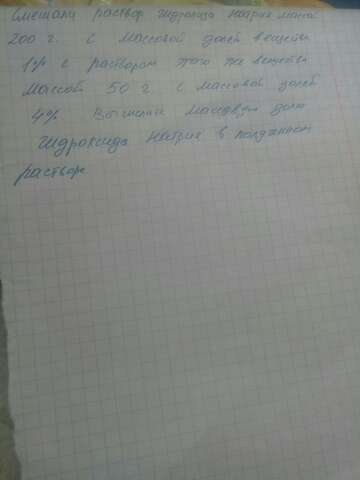 Смешали раствор гидроксида натрия массой
200 г. с массовой долей вещества
с раствором этого же вещества
массой 50 г. с массовой долей
4% Вычислить массовую долю
гидроксида натрия в полученном
растворе